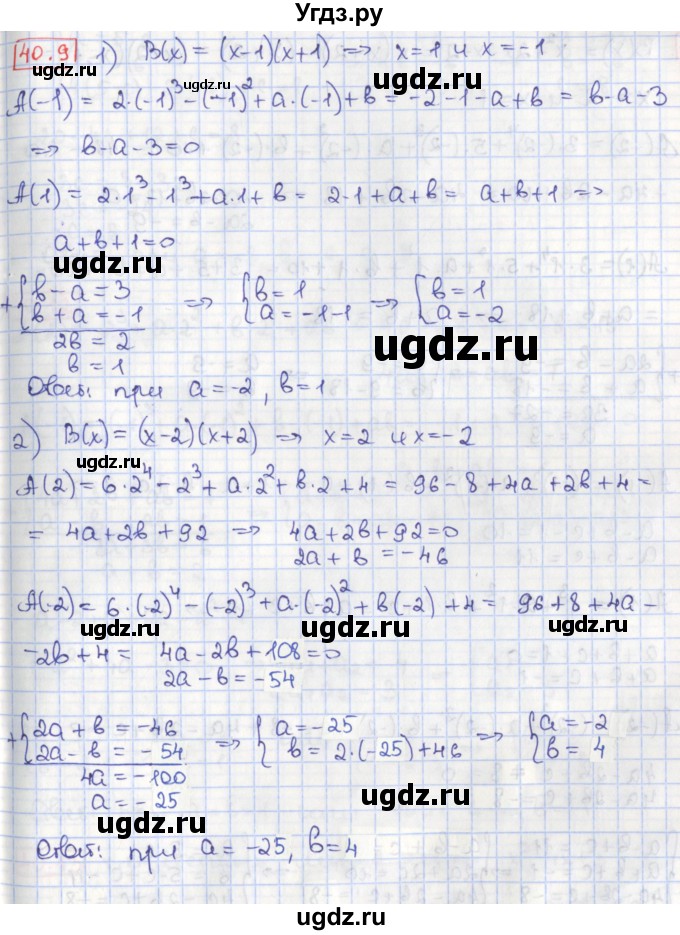 Угдз.ру
40.9 1) B(x) = (x-1)(x+1) => x=1 и x=-1
ugdz.ru ugdz.ru ugdz.ru
A(-1) = 2·(-1)³-(-1)²+a·(-1)+b = -2-1-a+b = b-a-3
=> b-a-3=0
ugdz.ru
A(1) = 2·1³-1³+a·1+b = 2·1+a+b = a+b+1 =>
a+b+1=0
ugdz.ru ugdz.ru
+ { b-a=3 => { b=1 => { b=1
b+a=-1 a=-1-1 a=-2
2b=2
b=1
ugdz.ru
Ответ: при a=-2, b=1
2) B(x) = (x-2)(x+2) => x=2 и x=-2
ugdz.ru ugdz.ru
A(2) = 6·2⁴-2³+a·2²+b·2+4 = 96-8+4a+2b+4 =
= 4a+2b+92 => 4a+2b+92=0
2a+b=-46
A(-2) = 6·(-2)⁴-(-2)³+a·(-2)²+b(-2)+4 = 96+8+4a-
ugdz.ru ugdz.ru ugdz.ru
-2b+4 = 4a-2b+108=0
2a-b=-54
+ { 2a+b=-46 => { a=-25 => { a=-2
2a-b=-54 b=2·(-25)+46 b=4
4a=-100
a=-25
ugdz.ru ugdz.ru
ugdz.ru
Ответ: при a=-25, b=4
ugdz.ru ugdz.ru
ugdz.ru